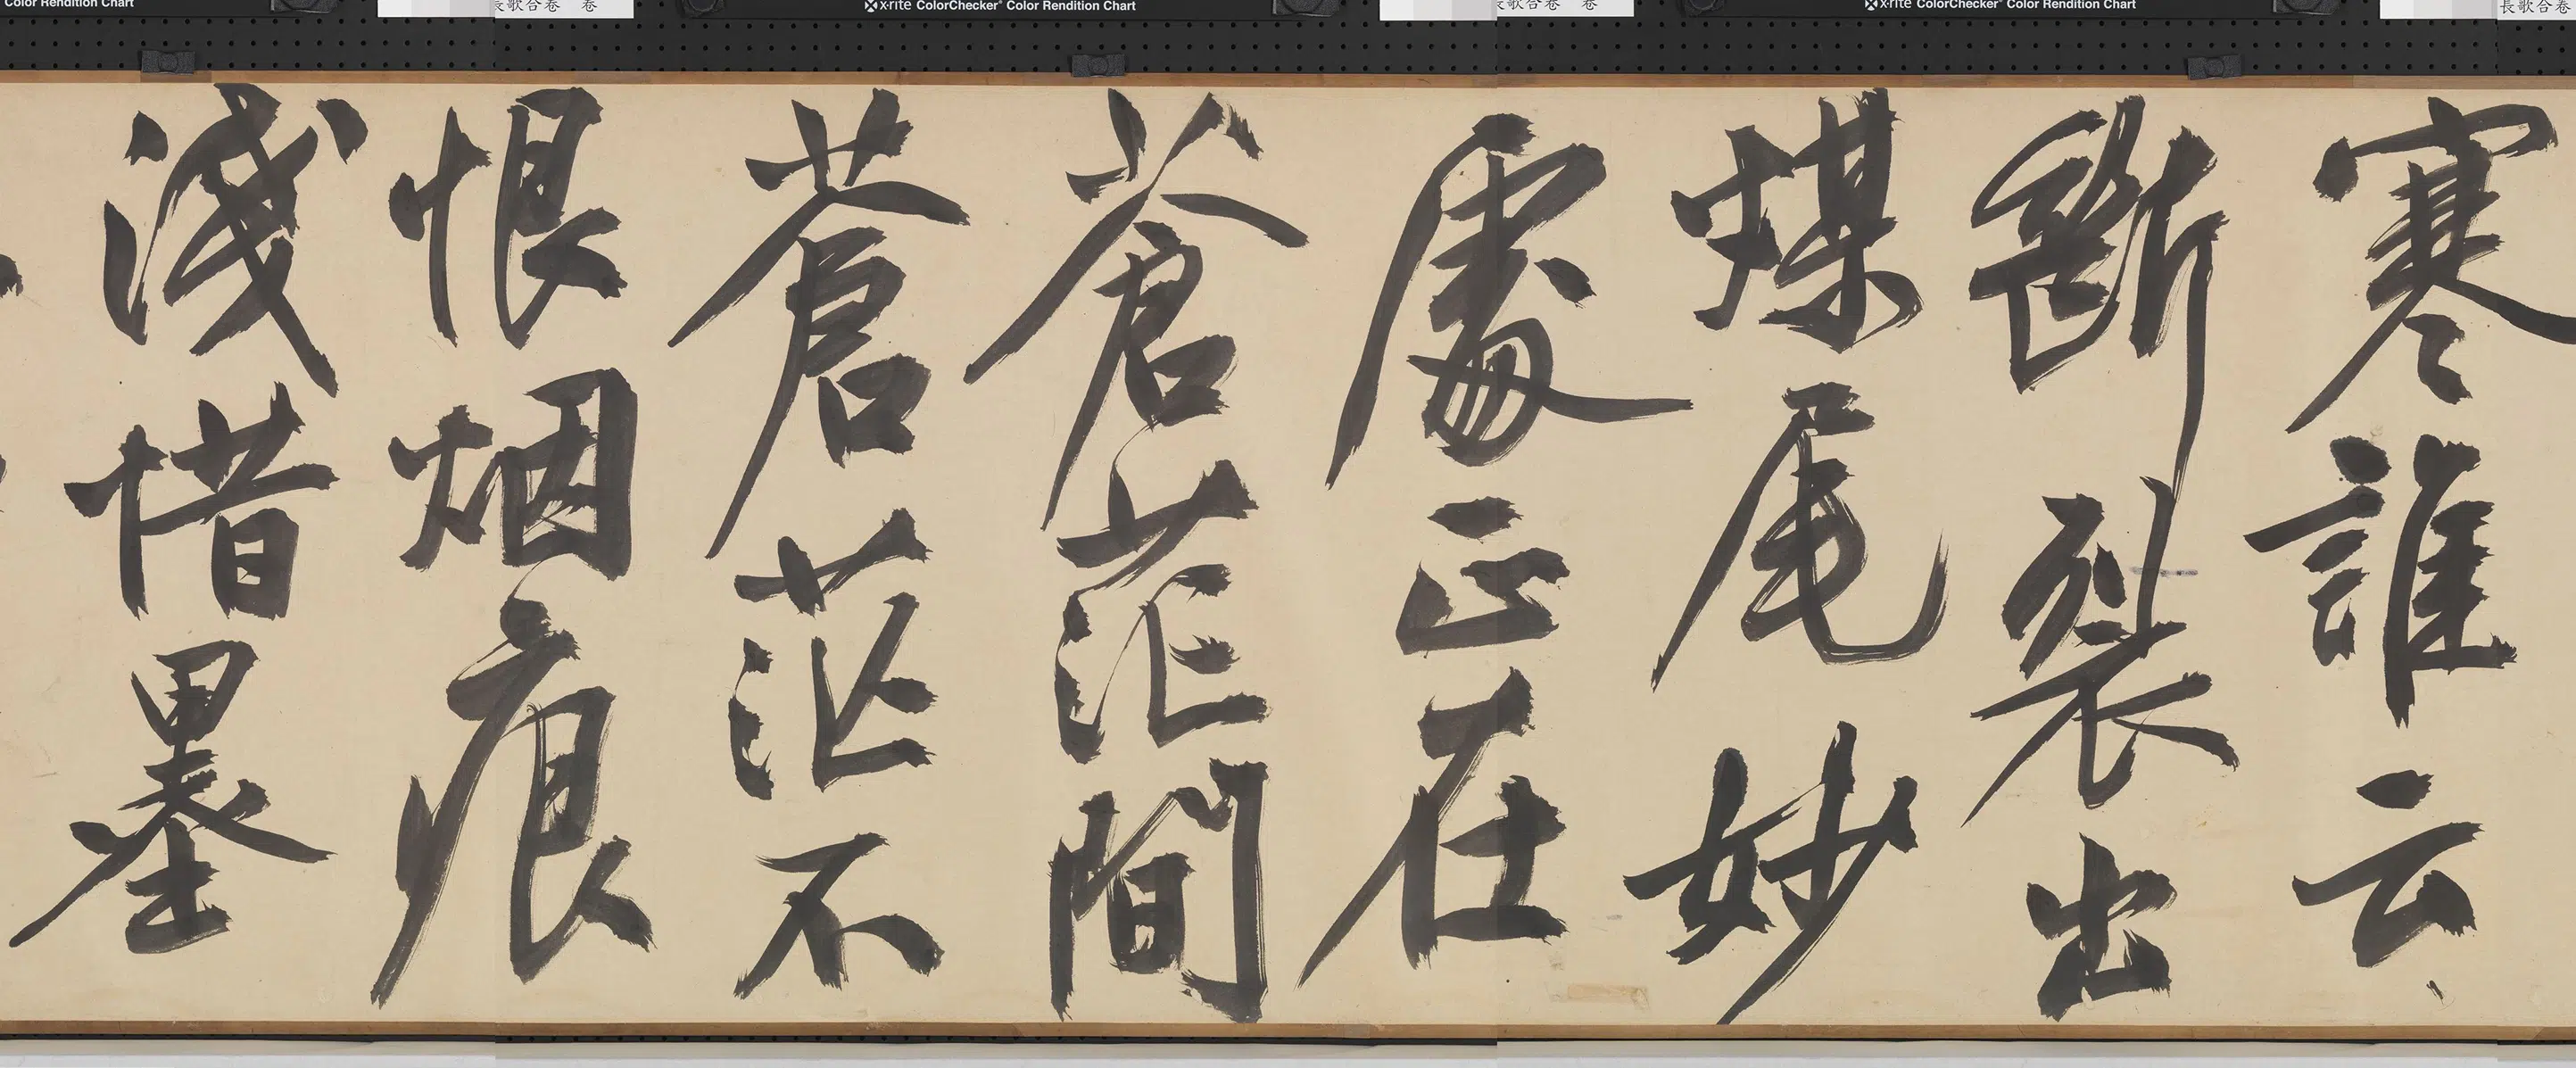 Color Rendition Chart
長歌合卷 卷
x·rite ColorChecker® Color Rendition Chart
歌合卷 卷
x·rite ColorChecker® Color Rendition Chart
長歌合卷
寒誰云
斷裂出
煤尾妙
處正在
蒼茫間
蒼茫不
恨烟痕
淺惜墨